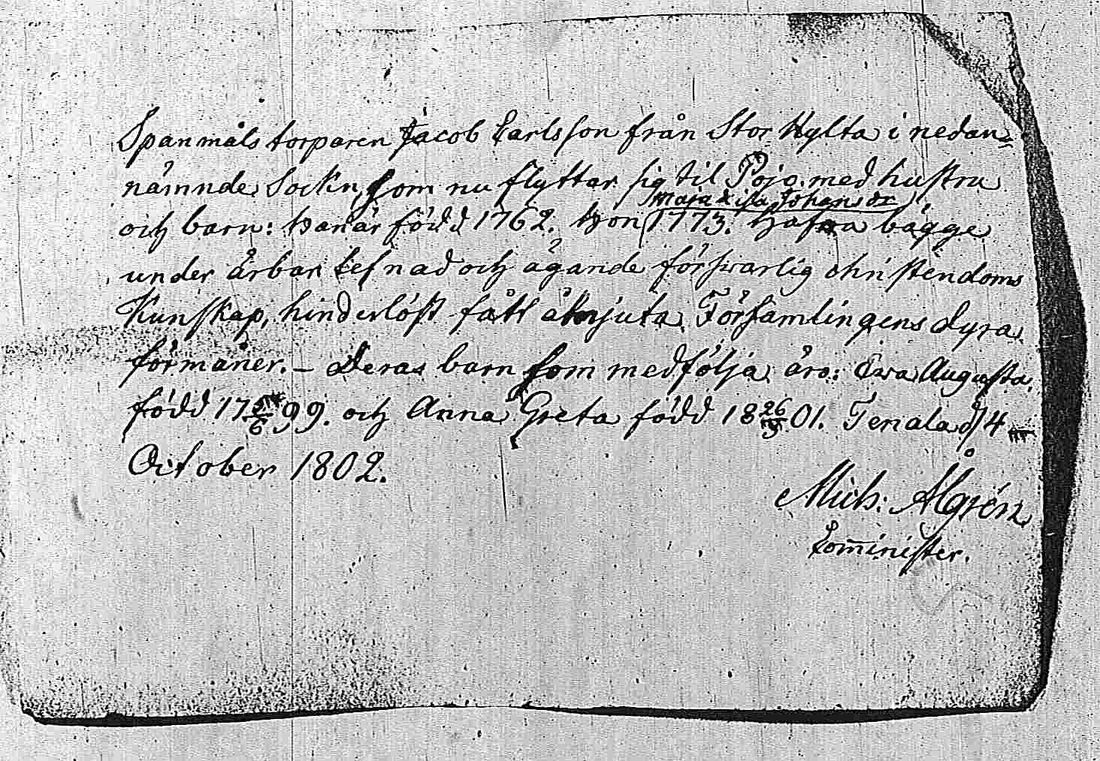 Spanmåls torparen Jacob Carlsson från Stor Hylta i nedan-
nämnde Sockn, som nu flyttar sig til Pojo med hustru
Maja Lisa Johans dr
och barn: Han är född 1762. Hon 1773. Hafva bägge
under ärbar lefnad och ägande förswarlig christendoms
Kunskap, hinderlöst fått åtnjuta Församlingens dyra
förmåner. – Deras barn som medfölja äro: Ewa Augusta
född 17 /6 99. och Anna Greta född 18 26/ 01. Tenala d 14
October 1802.
Mich: Ålgrén
Comminister.